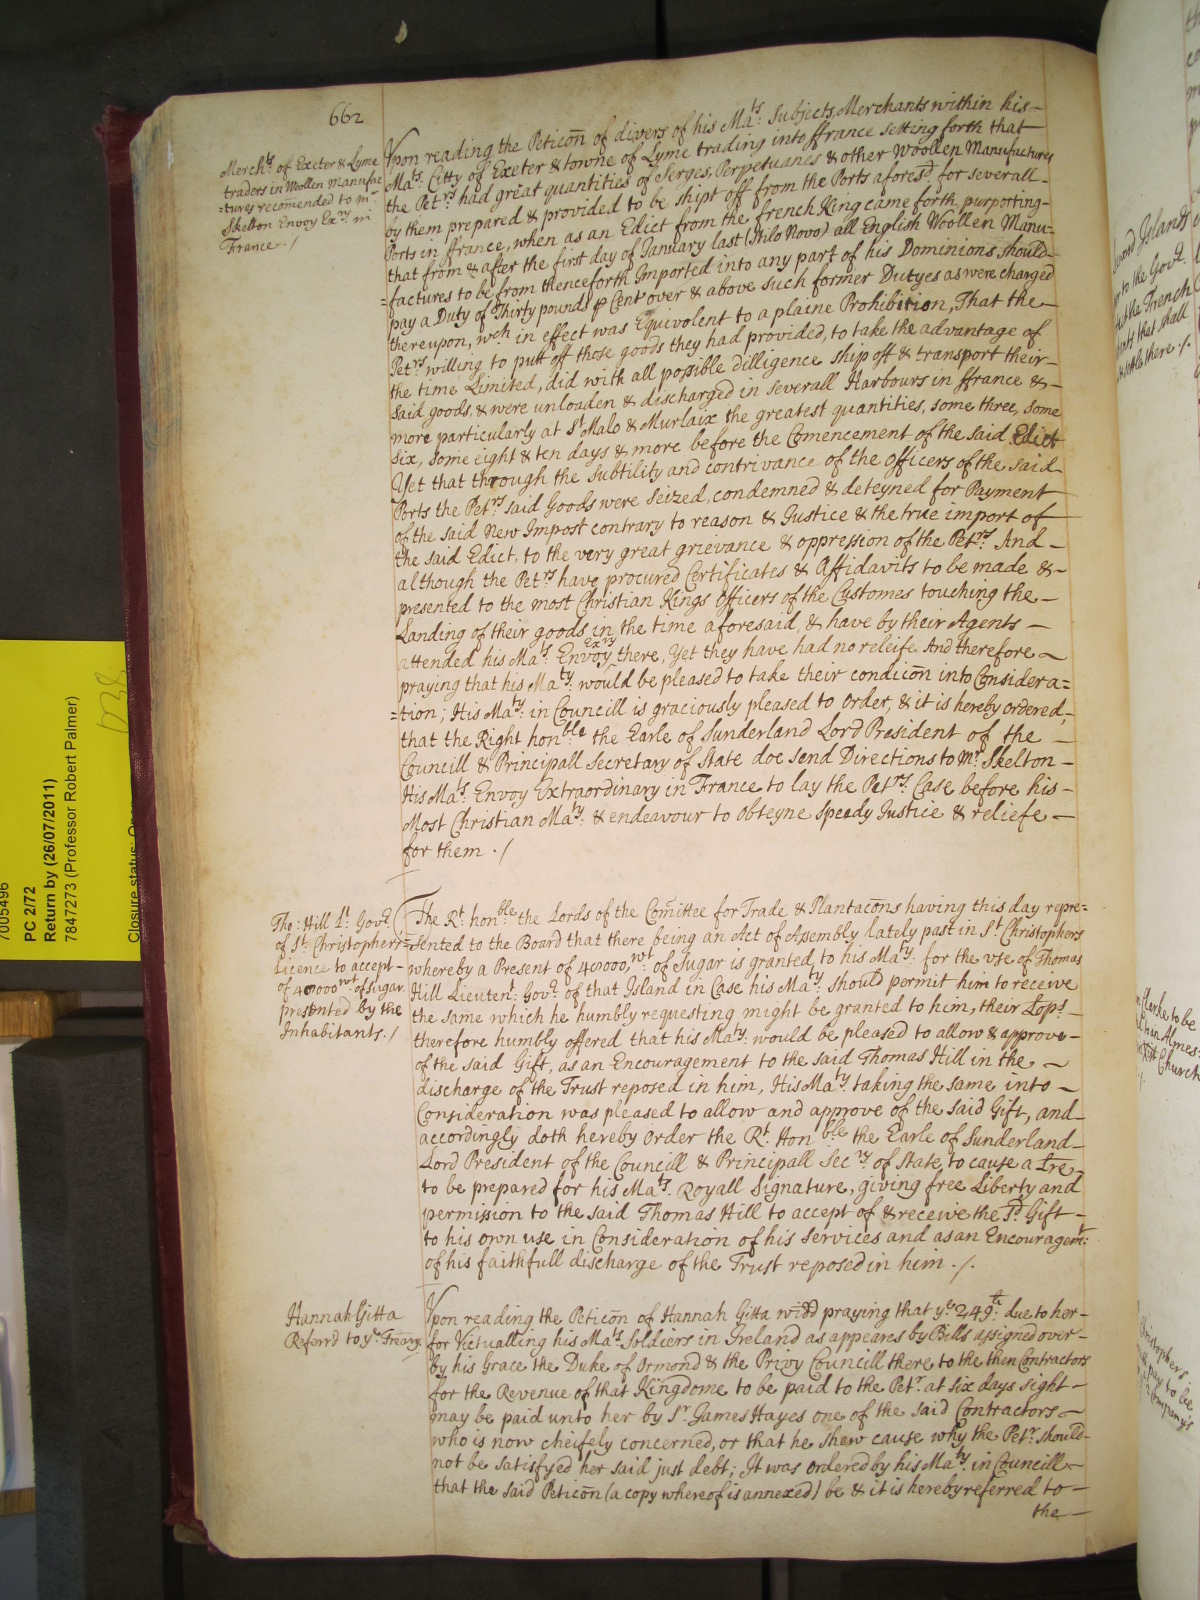 662
Merch:ts of Exeter & Lyme
traders in Woollen Manufac
=tures recomended to mr
Skelton Envoy Ex:ry in
France ./
Vpon reading the Peticōn of divers of his Ma:ts Subjects, Merchants within his
Ma:ts Citty of Exeter & towne of Lyme trading into ffrance setting forth that
the Pet:rs had great quantities of Serges, Perpetuanes & other Woollen Manufactures
by them prepared & provided to be shipt off from the Ports aforesd. for severall
Ports in ffrance, when as an Edict from the french King came forth purporting
that from & after the first day of January last (Stilo Novo) all English Woollen Manu=
=factures to be from thenceforth Imported into any part of his Dominions should
pay a Duty of Thirty pounds p Cent over & above such former Dutyes as were charged
thereupon, wch in effect was Equivolent to a plaine Prohibition, That the
Pet:rs willing to putt off those goods they had provided, to take the advantage of
the time Limited, did with all possible dilligence ship off & transport their
said goods, & were unloaden & discharged in severall Harbours in ffrance &
more particularly at St Malo & Murlaix the greatest quantities, some three, some
six, some eight & ten days & more before the Comencement of the said Edict
Yet that through the subtility and contrivance of the officers of the said
Ports the Pet:rs said Goods were seized, condemned & deteyned for Payment
of the said New Impost contrary to reason & Justice & the true import of
the said Edict, to the very great grievance & oppression of the Pet:rs And
although the Pet:rs have procured Certificates & Affidavits to be made &
presented to the most Christian Kings officers of the Customes touching the
Landing of their goods in the time aforesaid, & have by their Agents
attended his Ma:ts Envoy Exry there, Yet they have had no releife And therefore
praying that his Ma:ty would be pleased to take their condicōn into Considera=
=tion; His Ma:ty in Councill is graciously pleased to order, & it is hereby ordered,
that the Right hon:ble the Earle of Sunderland Lord President of the
Councill & Principall Secretary of State doe send Directions to Mr Skelton
His Ma:ts Envoy Extraordinary in France to lay the Pet:rs Case before his
Most Christian Ma:ty & endeavour to obteyne speedy Justice & reliefe
for them ./
Tho: Hill Lt: Govr.
of St: Christophers
Licence to accept
of 40000 wt of Sugar
presented by the
Inhabitants ./
The Rt. hon:ble the Lords of the Comittee for Trade & Plantacōns having this day repre=
=sented to the Board that there being an Act of Assembly lately past in St Christophers
whereby a Present of 40000, wt of Sugar is granted to his Ma:ty for the vse of Thomas
Hill Lieutent: Govr. of that Island in Case his Ma:ty should permit him to receive
the same which he humbly requesting might be granted to him, their Lops
therefore humbly offered that his Ma:ty would be pleased to allow & approve
of the said Gift, as an Encouragement to the said Thomas Hill in the
discharge of the Trust reposed in him, His Ma:ty taking the same into
Consideration was pleased to allow and approve of the said Gift, and
accordingly doth hereby Order the Rt. Hon:ble the Earle of Sunderland
Lord President of the Councill & Principall Sec:ry of State, to cause a Lre
to be prepared for his Ma:ts Royall Signature, giving free Liberty and
permission to the said Thomas Hill to accept of & receive the sd. Gift
to his own use in Consideration of his services and as an Encouragemt:
of his faithfull discharge of the Trust reposed in him ./.
Hannah Gitta
Referr'd to ye. Treāry.
Vpon reading the Peticōn of Hannah Gitta widd praying that ye. 249:li due to her
for Victualling his Ma:ts Soldiers in Ireland as appeares by Bills assigned over
by his Grace the Duke of Ormond & the Privy Councill there to the then Contractors
for the Revenue of that Kingdome to be paid to the Petr. at six days sight
may be paid unto her by Sr. James Hayes one of the said Contractors
who is now cheifely concerned, or that he shew cause why the Petr. should
not be satisfyed her said just debt; It was ordered by his Ma:ty in Councill
that the said Peticōn (a copy whereof is annexed) be & it is hereby referred to
the
7005496
PC 2/72
Return by (26/07/2011)
7847273 (Professor Robert Palmer)
Closure status:
Islands
to the Govr.
the French
that shall
settle there ./.
Clerke to be
Almes
Church
Christophers
pay to be
Company's